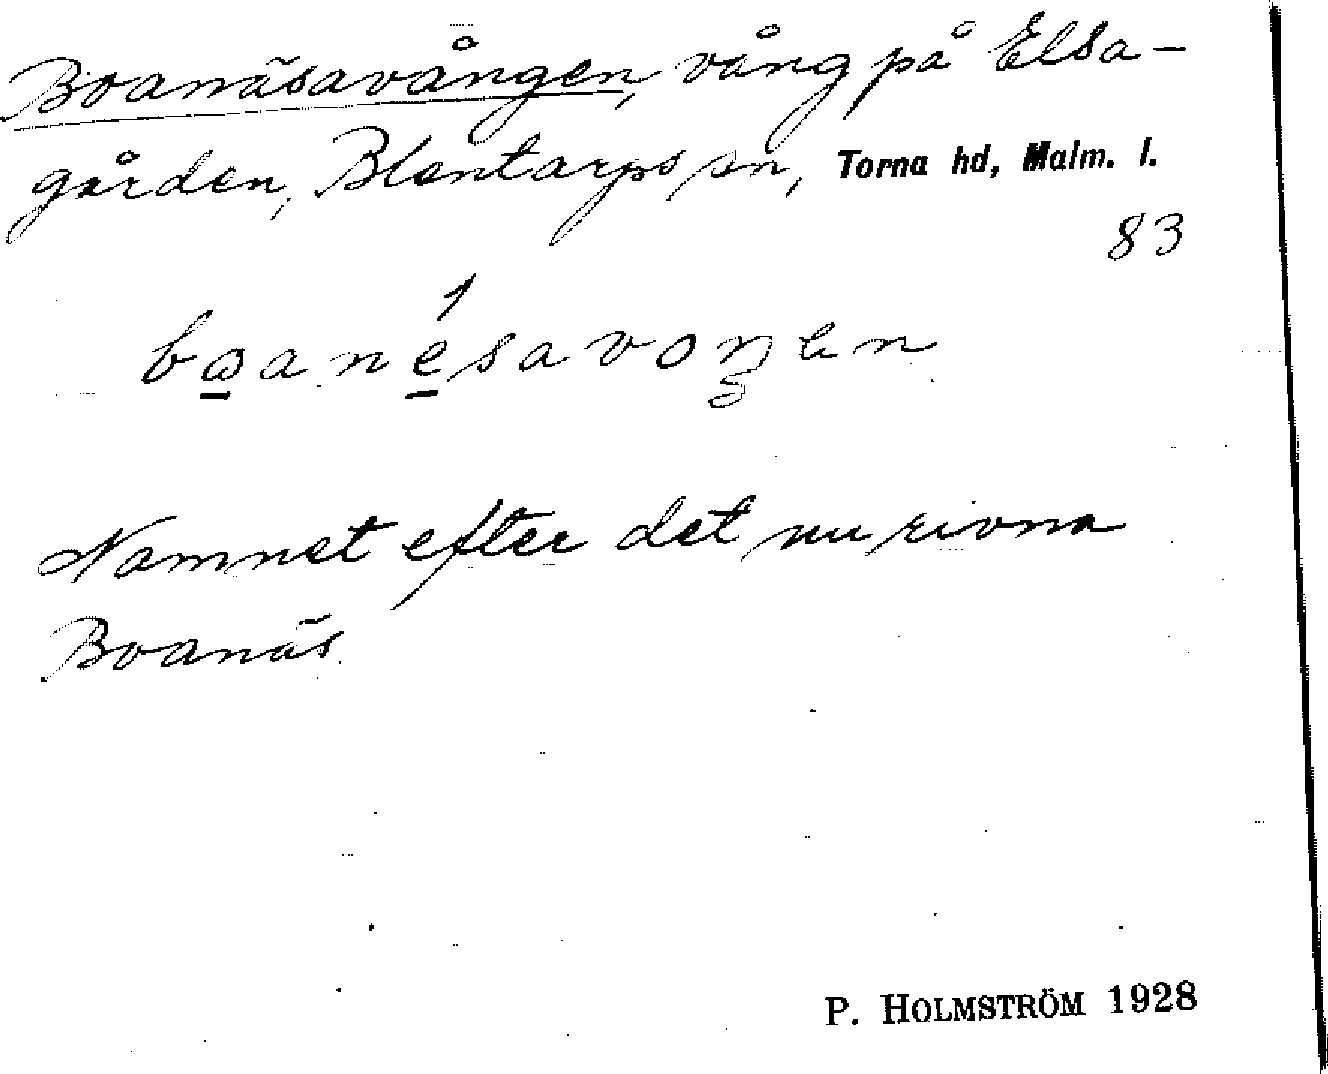 Boanäsavången, vång på Elsa-
gården, Blentarps sn, Torna hd, Malm. l.
83
Namnet efter det nu rivna
Boanäs.
P. HOLMSTRÖM 1928